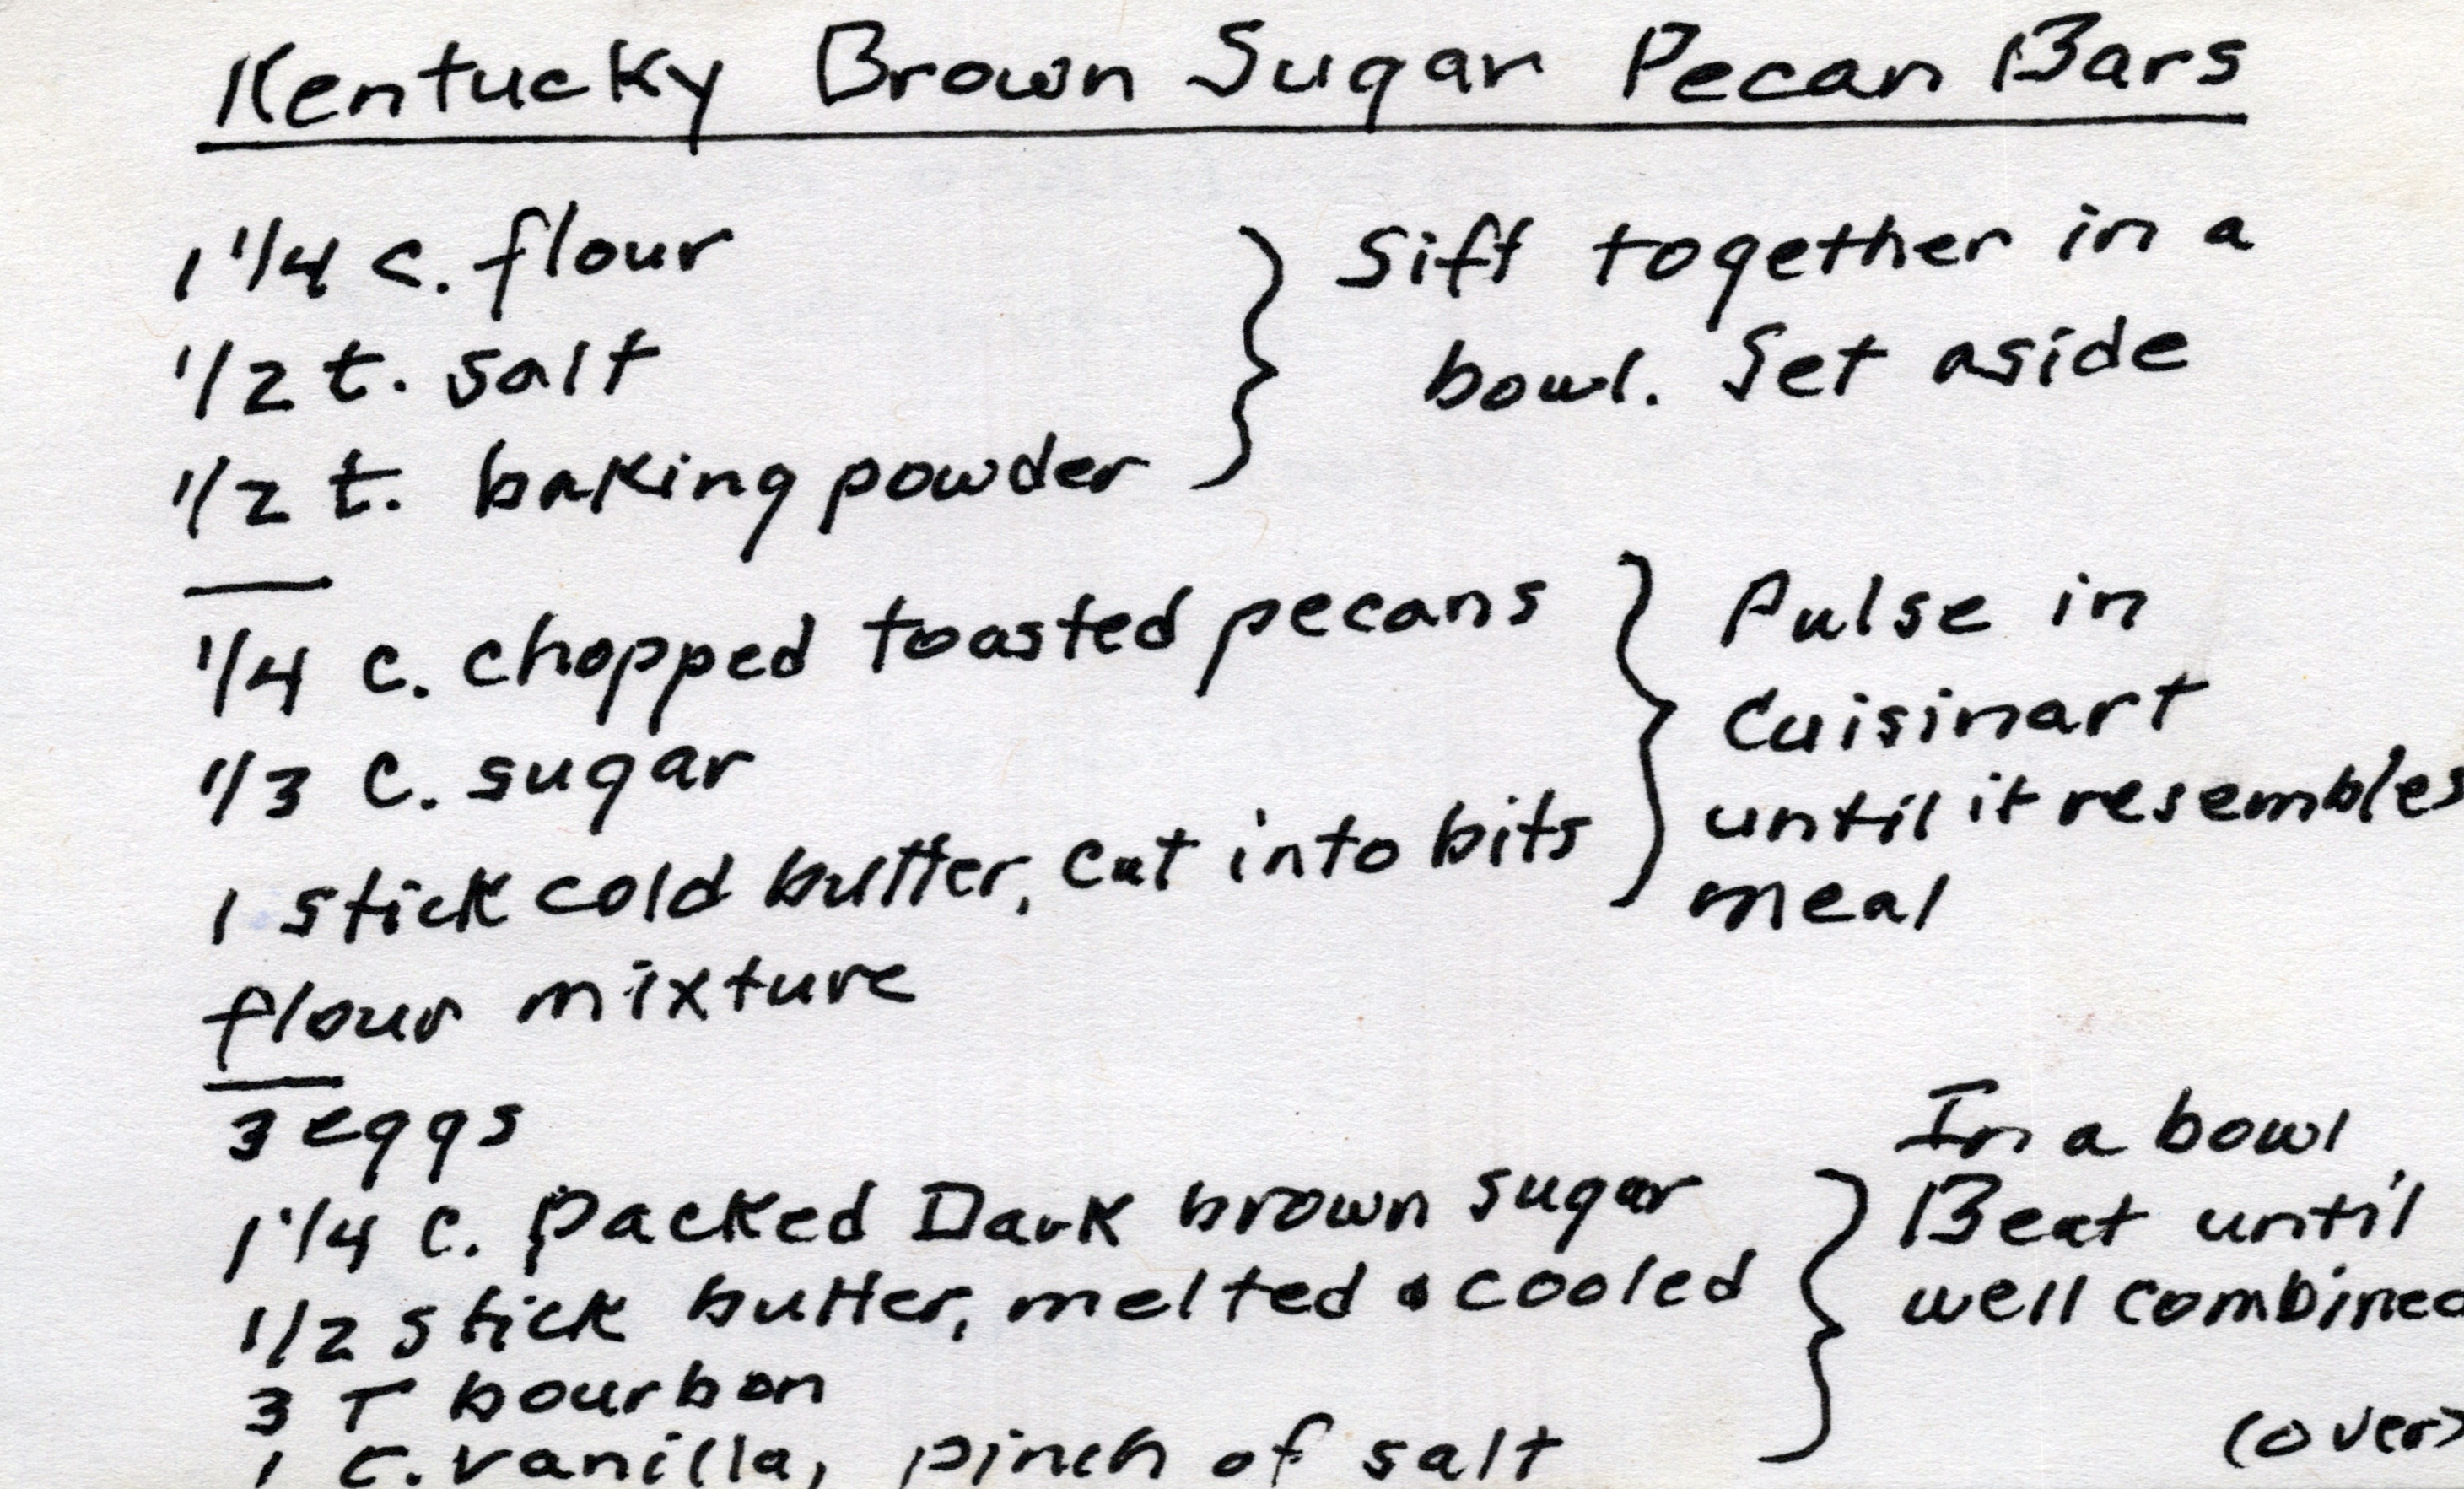 Kentucky Brown Sugar Pecan Bars
1 1/4 c. flour
1/2 t. salt
1/2 t. baking powder
Sift together in a
bowl. Set aside
1/4 c. chopped toasted pecans
1/3 c. sugar
1 stick cold butter, cut into bits
flour mixture
Pulse in
Cuisinart
until it resembles
meal
3 eggs
1 1/4 c. packed Dark brown sugar
1/2 stick butter, melted & cooled
3 T bourbon
1 c. vanilla, pinch of salt
In a bowl
Beat until
well combined
(over)